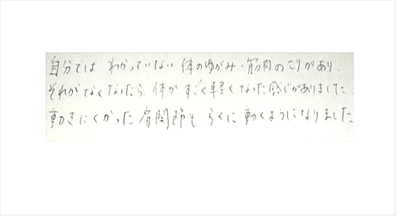 自分では わかっていない 体のゆがみ・筋肉のこりがあり、
それがなくなったら、体が すごく軽くなった感じがありました。
動きにくかった 肩関節も らくに 動くようになりました。